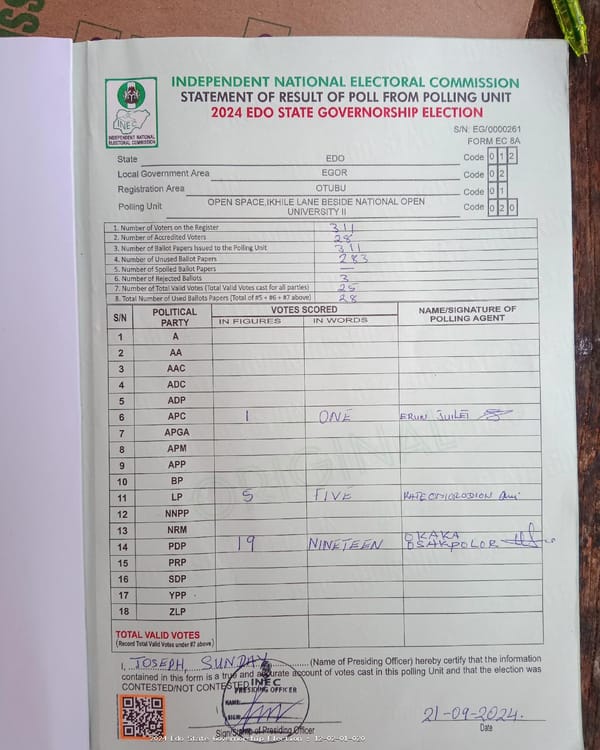 INDEPENDENT NATIONAL ELECTORAL COMMISSION
STATEMENT OF RESULT OF POLL FROM POLLING UNIT
2024 EDO STATE GOVERNORSHIP ELECTION
INEC
INDEPENDENT NATIONAL
ELECTORAL COMMISSION
S/N: EG/0000261
FORM EC 8A
State EDO Code 0 1 2
Local Government Area EGOR Code 0 2
Registration Area OTUBU Code 0 1
Polling Unit OPEN SPACE,IKHILE LANE BESIDE NATIONAL OPEN UNIVERSITY II Code 0 2 0
1. Number of Voters on the Register 311
2. Number of Accredited Voters 28
3. Number of Ballot Papers Issued to the Polling Unit 311
4. Number of Unused Ballot Papers 283
5. Number of Spoiled Ballot Papers —
6. Number of Rejected Ballots 3
7. Number of Total Valid Votes (Total Valid Votes cast for all parties) 25
8. Total Number of Used Ballots Papers (Total of #5 + #6 + #7 above) 28
S/N POLITICAL PARTY VOTES SCORED NAME/SIGNATURE OF POLLING AGENT
IN FIGURES IN WORDS
1 A
2 AA
3 AAC
4 ADC
5 ADP
6 APC 1 ONE ERUN
7 APGA
8 APM
9 APP
10 BP
11 LP 5 FIVE
12 NNPP
13 NRM
14 PDP 19 NINETEEN OKAKA OSAKPOLOR
15 PRP
16 SDP
17 YPP
18 ZLP
ORIGINAL
TOTAL VALID VOTES
(Record Total Valid Votes under #7 above)
I, JOSEPH, SUNDAY (Name of Presiding Officer) hereby certify that the information
contained in this form is a true and accurate account of votes cast in this polling Unit and that the election was
CONTESTED/NOT CONTESTED
INEC
PRESIDING OFFICER
NAME:
SIGN:
Sign/Stamp of Presiding Officer
21-09-2024.
Date
2024 Edo State Governorship Election : 12-02-01-020